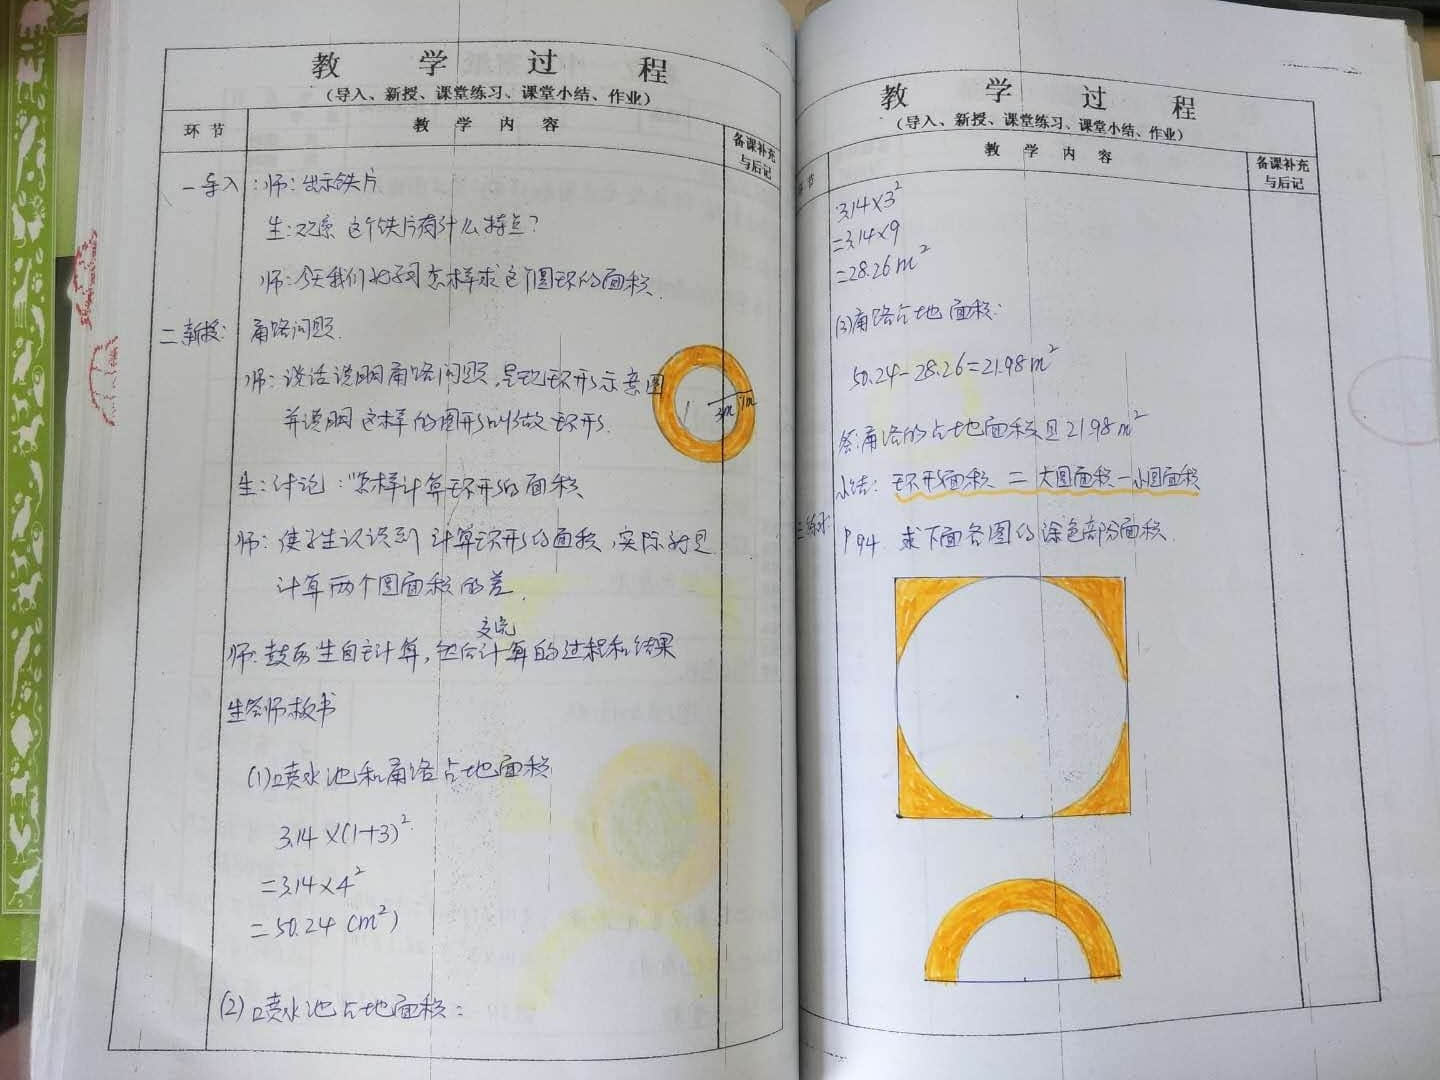 教 学 过 程
(导入、新授、课堂练习、课堂小结、作业)
环 节
教 学 内 容
备课补充
与后记
一导入:师:出示铁片
生:观察这个铁片有什么特点?
师:今天我们学习怎样求这个圆环的面积.
二新授: 甬路问题.
师:谈话说明甬路问题,呈现环形示意图
并说明这样的图形叫做环形.
3m 1m
生:讨论:怎样计算环形的面积
师:使学生认识到计算环形的面积,实际就是
计算两个圆面积的差.
交流
师:鼓励生自主计算,然后计算的过程和结果
生答师板书
(1)喷水池和甬路占地面积
3.14×(1+3)²
=3.14×4²
=50.24 (m²)
(2)喷水池占地面积:
教 学 过 程
(导入、新授、课堂练习、课堂小结、作业)
节
教 学 内 容
备课补充
与后记
3.14×3²
=3.14×9
=28.26m²
(3)甬路占地面积:
50.24-28.26=21.98m²
答:甬路的占地面积是21.98m²
小结: 环形面积=大圆面积-小圆面积
三练习: P94. 求下面各图的涂色部分面积.